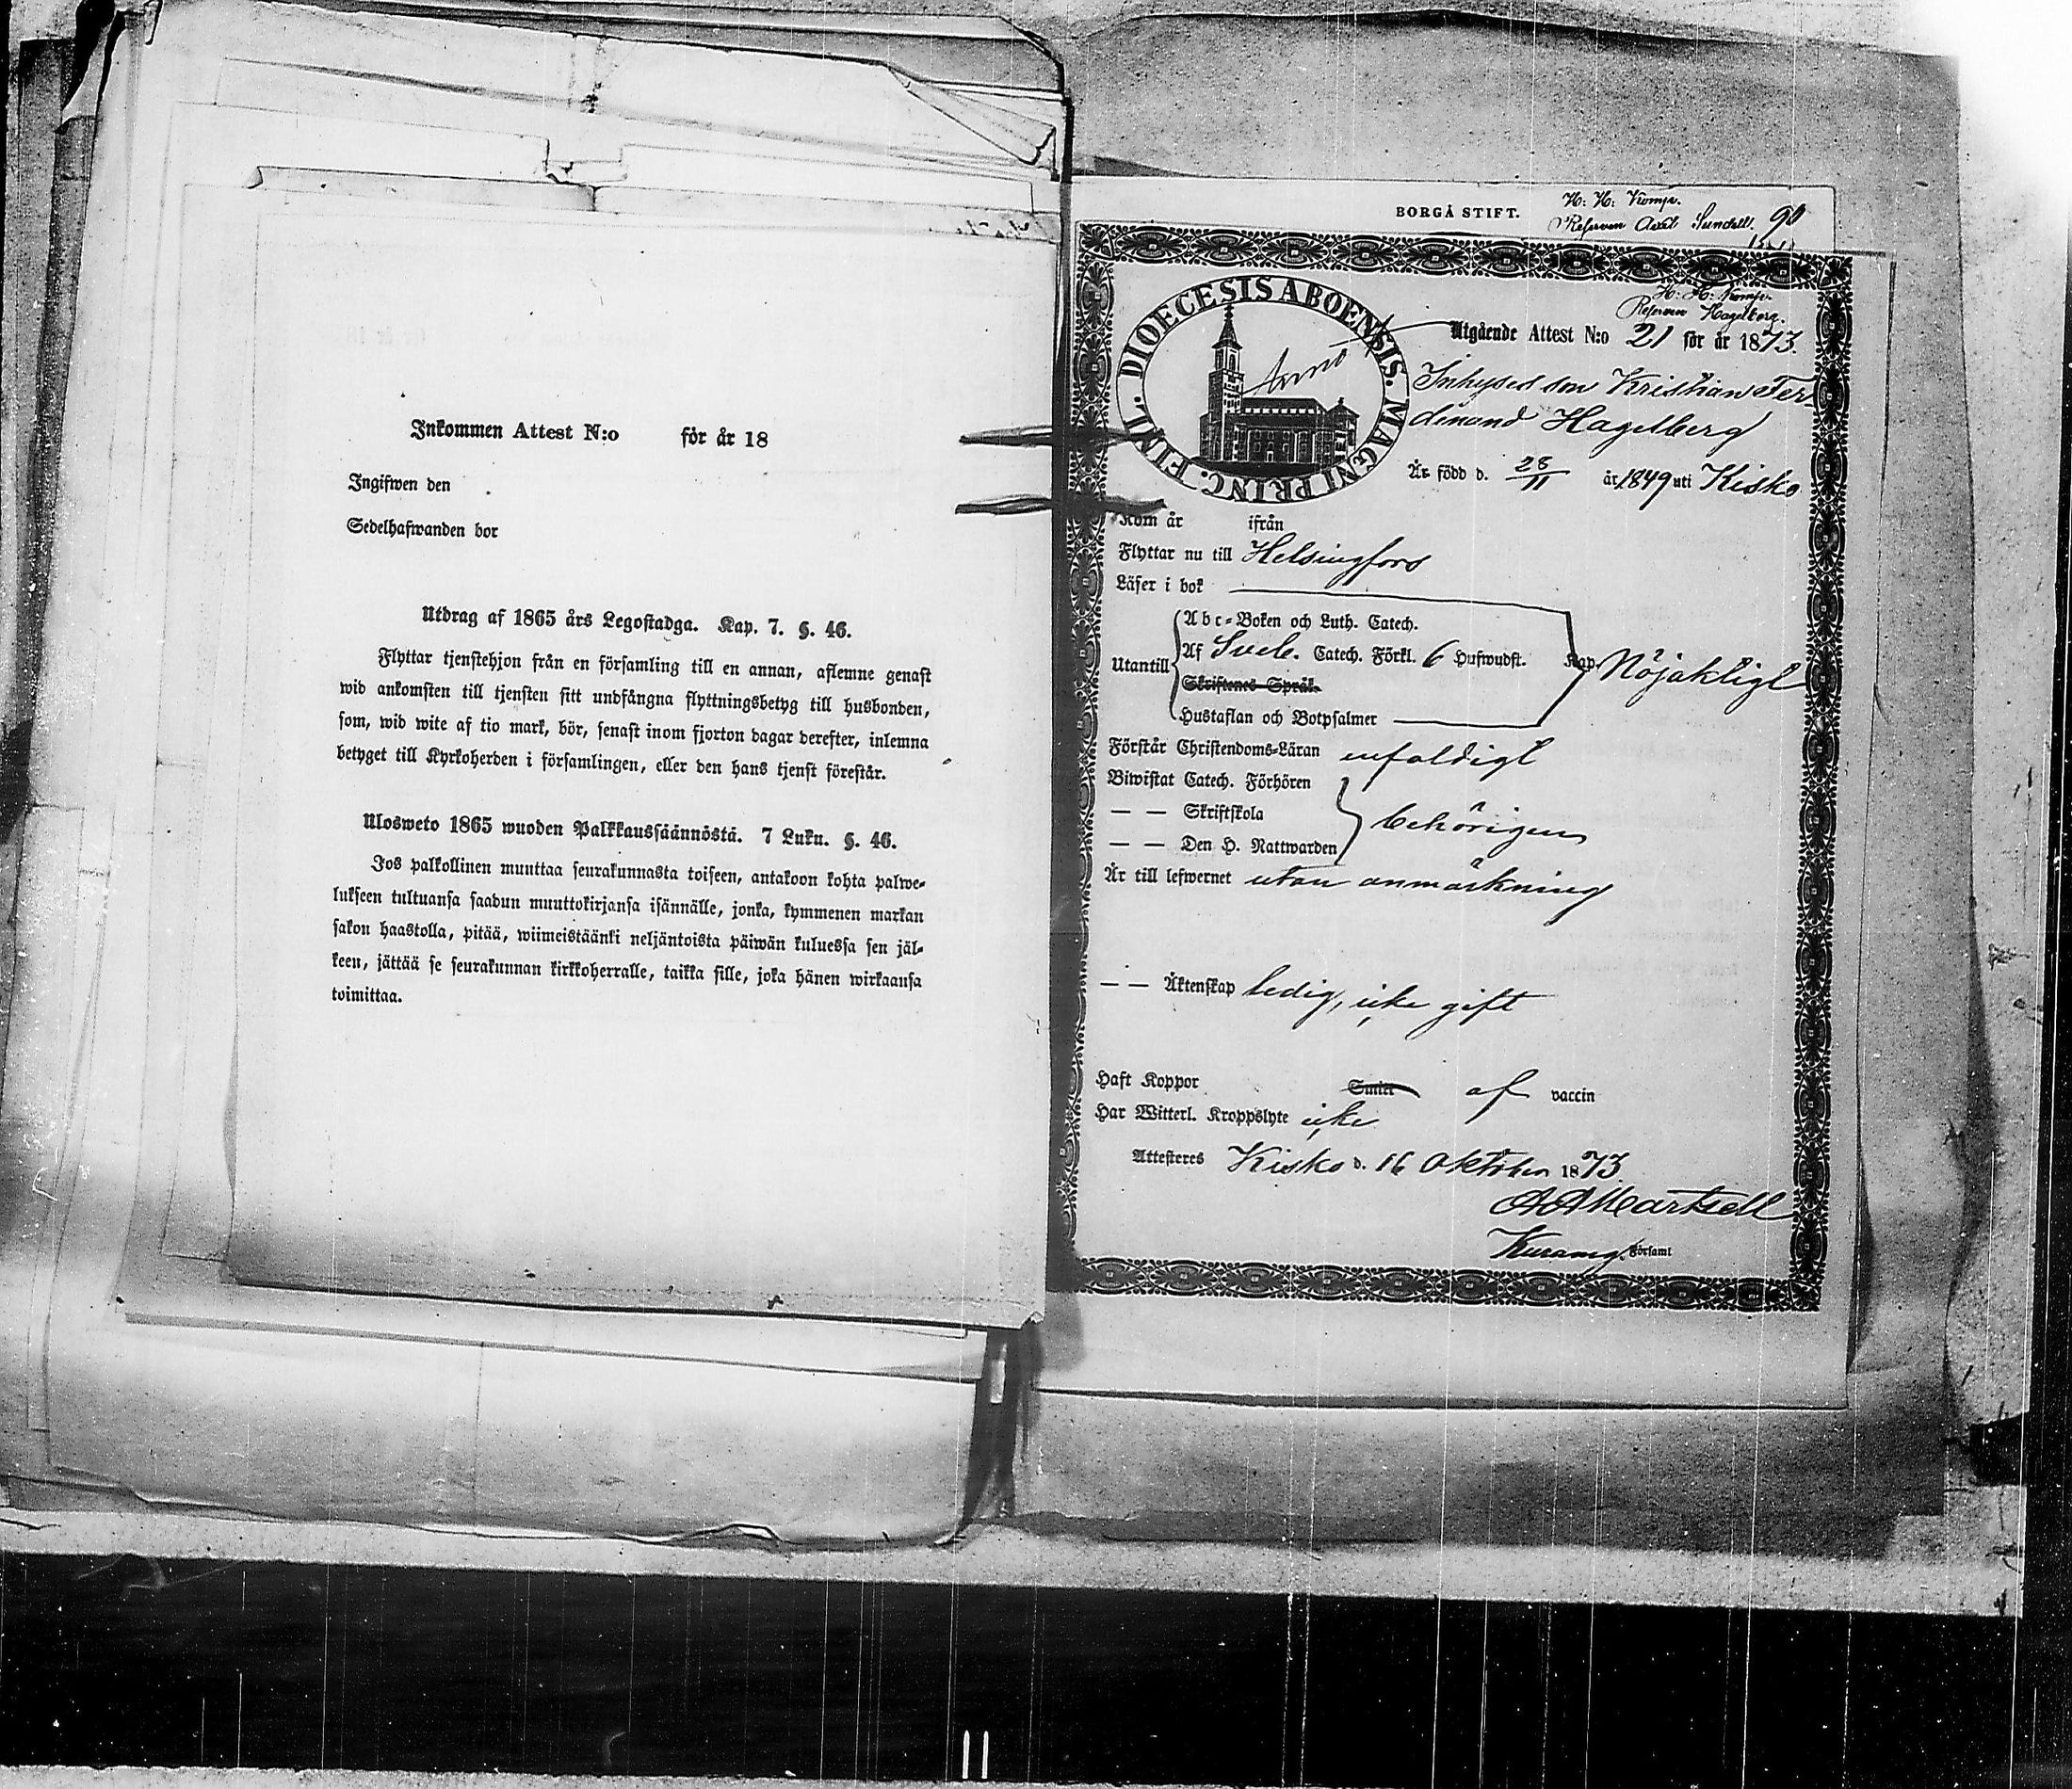 Inkommen Attest N:o för år 18
Ingifwen den
Sedelhafwanden bor
Utdrag af 1865 års Legostadga. Kap. 7. §. 46.
Flyttar tjenstehjon från en församling till en annan, aflemne genast
wid ankomsten till tjensten sitt undfångna flyttningsbetyg till husbonden,
som, wid wite af tio mark, bör, senast inom fjorton dagar derefter, inlemna
betyget till Kyrkoherden i församlingen, eller den hans tjenst förestår.
Ulosweto 1865 wuoden Palkkaussäännöstä. 7 Luku. §. 46.
Jos palkollinen muuttaa seurakunnasta toiseen, antakoon kohta palwe-
lukseen tultuansa saadun muuttokirjansa isännälle, jonka, kymmenen markan
sakon haastolla, pitää, wiimeistäänki neljäntoista päiwän kuluessa sen jäl-
keen, jättää se seurakunnan kirkkoherralle, taikka sille, joka hänen wirkaansa
toimittaa.
BORGÅ STIFT.
H: H: Komp.
Reserven Axel Sundell. 90
DIOECESIS ABOENSIS. MAGNI PRINC. FINL.
H: H: Komp.
Reserven Hagelberg.
Utgående Attest N:o 21 för år 1873.
Inhyses son Kristian Fer-
dinand Hagelberg
Är född d. 28/11 år 1849 uti Kisko
Kom år ifrån
Flyttar nu till Helsingfors
Läser i bok
Utantill
Abc-Boken och Luth. Catech.
Af Sveb. Catech. Förkl. 6 Hufwudst. Kap. Nöjaktigt
Skriftenes Språk.
Hustaflan och Botpsalmer
Förstår Christendoms-Läran enfaldigt
Biwistat Catech. Förhören
— — Skriftskola behörigen
— — Den H. Nattwarden
Är till lefwernet utan anmärkning
— — Äktenskap ledig, icke gift
Haft Koppor Smitt af vaccin
Har Witterl. Kroppslyte icke
Attesteres Kisko d. 16 Oktober 1873.
Församl